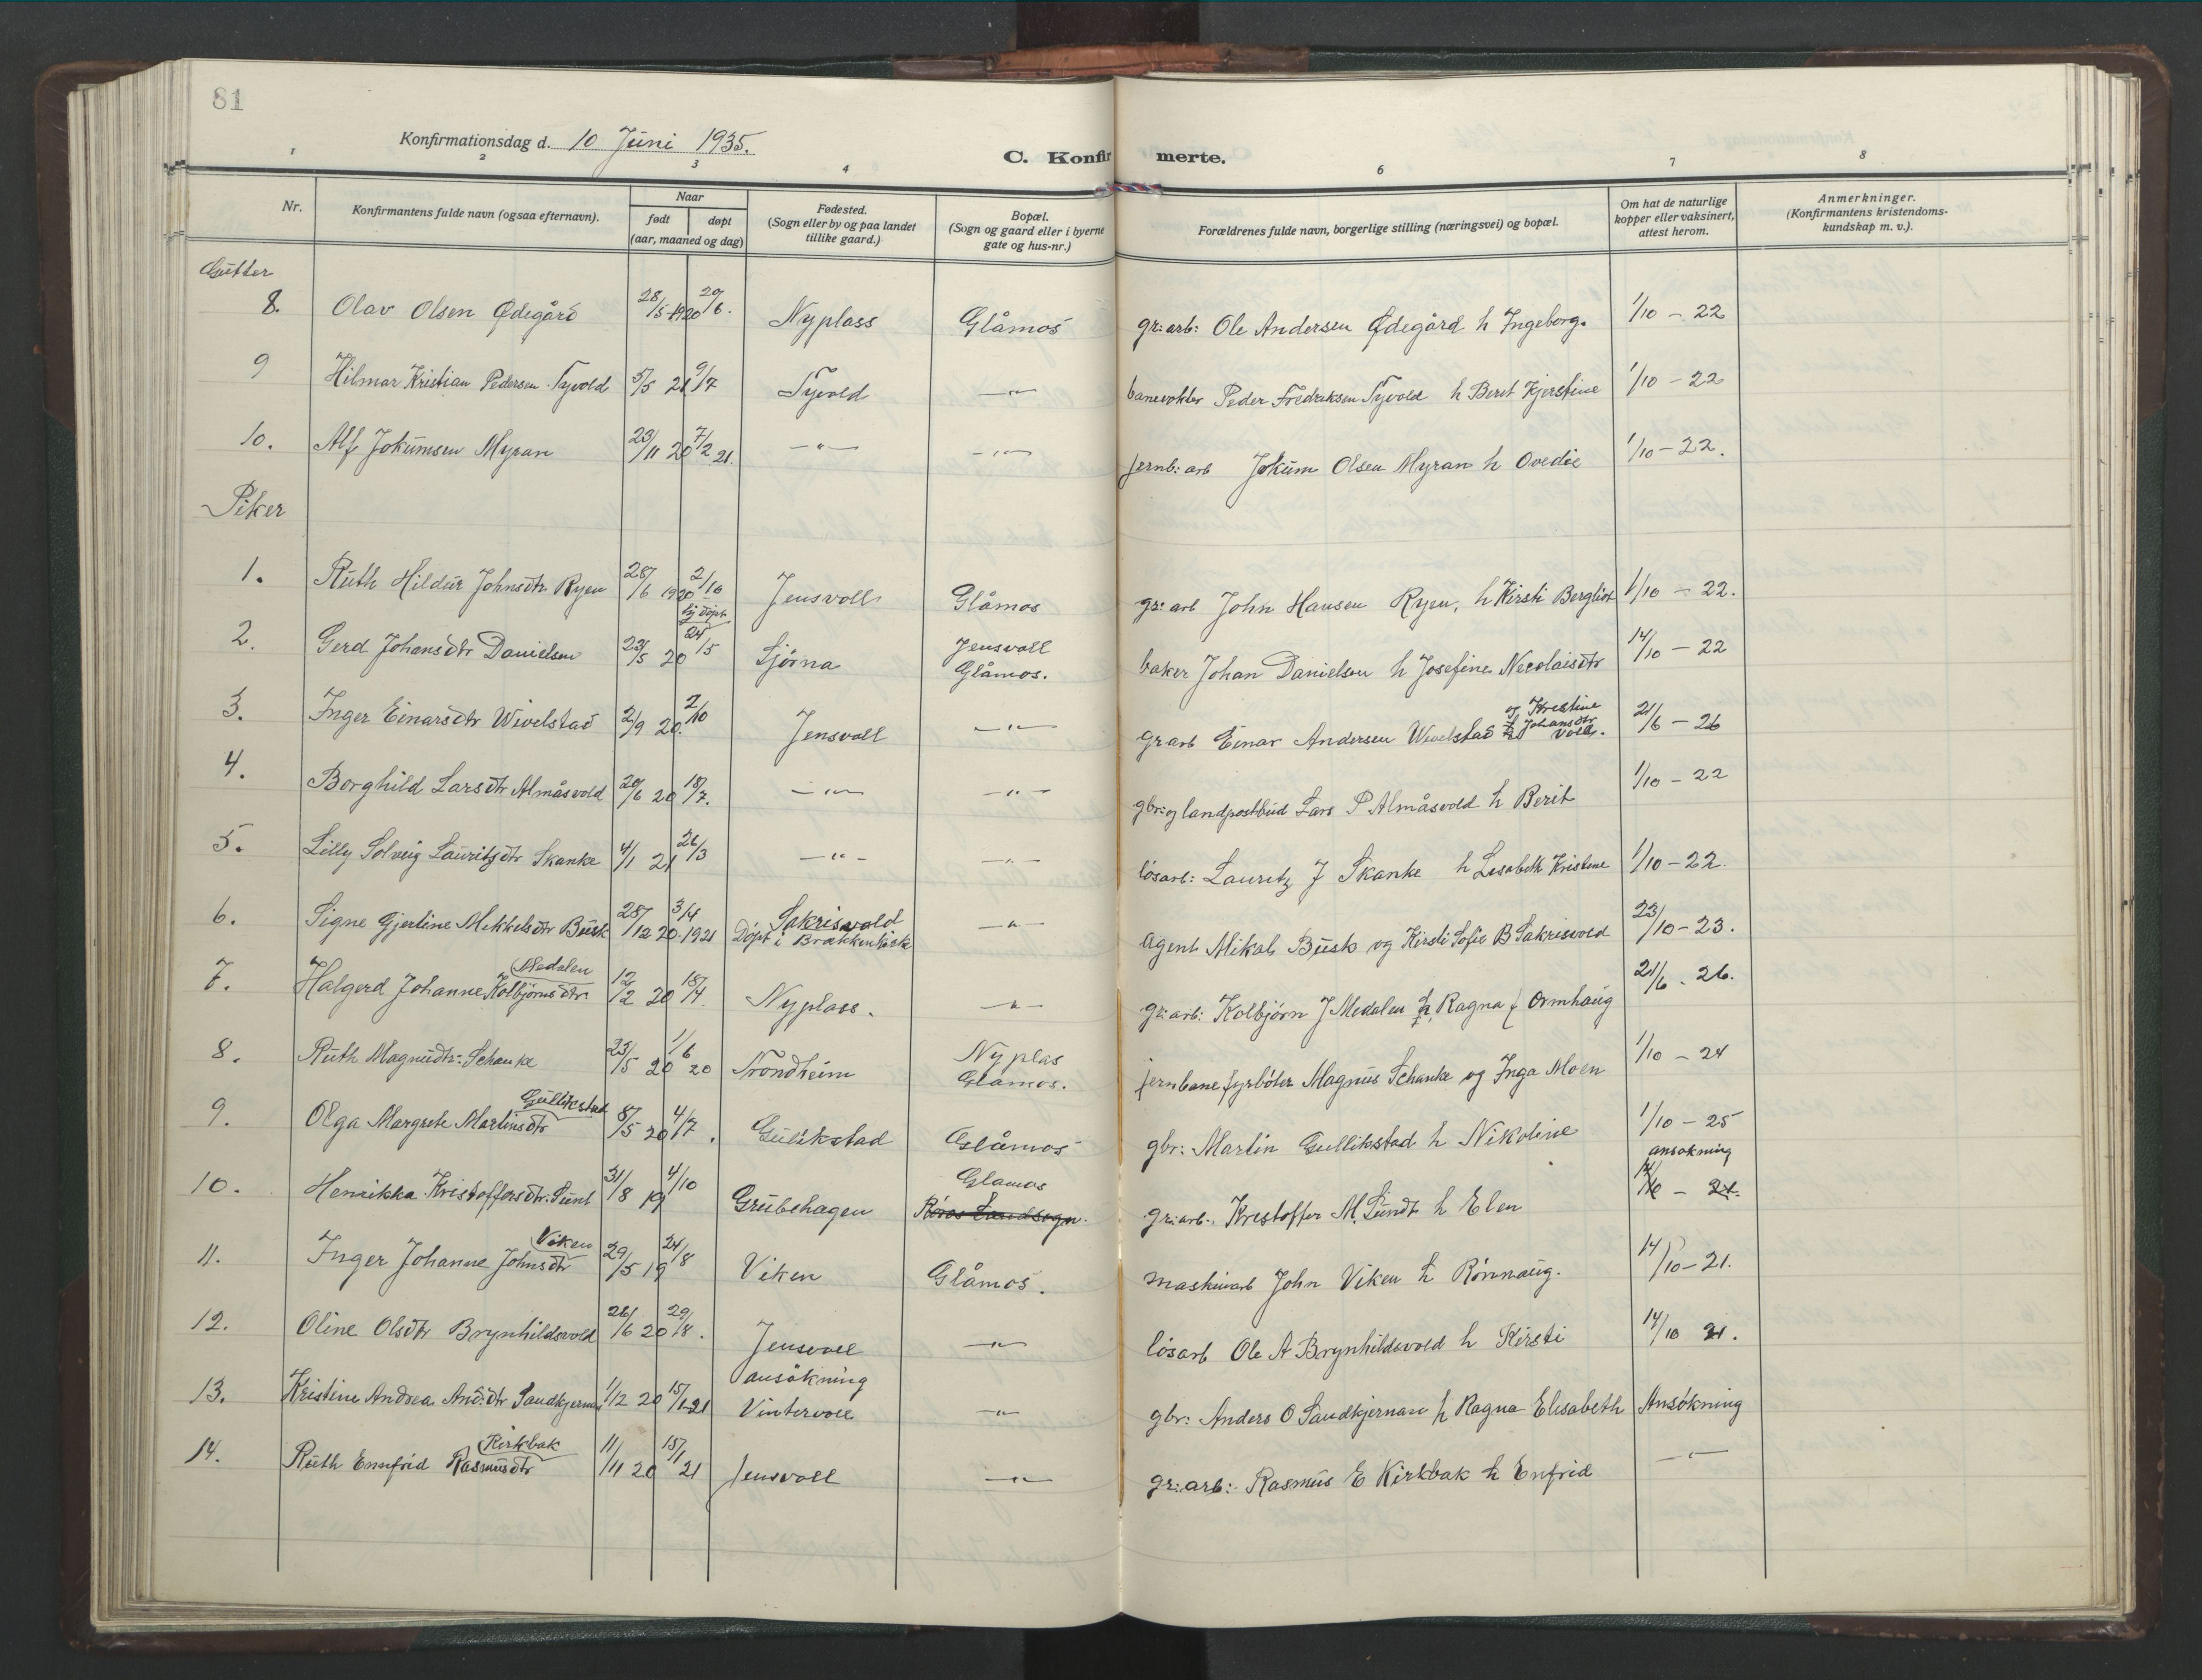 81
Konfirmationsdag d. 10 Juni 1935.
C. Konfirmerte.
1 2 3 4 6 7 8
Nr.
Konfirmantens fulde navn (ogsaa efternavn).
Naar
født døpt
(aar, maaned og dag)
Fødested.
(Sogn eller by og paa landet
tillike gaard.)
Bopæl.
(Sogn og gaard eller i byerne
gate og hus-nr.)
Forældrenes fulde navn, borgerlige stilling (næringsvei) og bopæl.
Om hat de naturlige
kopper eller vaksinert,
attest herom.
Anmerkninger.
(Konfirmantens kristendoms-
kundskap m. v.).
Gutter
8. Olav Olsen Ødegård 28/5 1920 20/6. Nyplass Glåmos gr:arb: Ole Andersen Ødegård h Ingeborg. 1/10 - 22
9 Hilmar Kristian Pedersen Tyvold 5/5 21 9/7 Tyvold -"- banevokter Peder Fredriksen Tyvold h Berit Kjerstine 1/10 - 22
10. Alf Jokumsen Myran 23/11 20 7/2 21. -"- -"- jernb: arb Jokum Olsen Myran h Ovedie 1/10 - 22.
Piker
1. Ruth Hildur Johnsdtr Ryen 28/6 1920 2/10 Jensvoll Glåmos gr: arb John Hansen Ryen, h Kirsti Bergliot 1/10 - 22.
hj døpt
2. Gerd Johansdtr Danielsen 23/5 20 24/5 Sjörna Jensvoll
Glåmos. baker Johan Danielsen h Josefine Necolaisdtr 14/10 - 22
3. Inger Einarsdtr Wivelstad 2/9 20. 2/10 Jensvoll -"- gr arb Einar Andersen Wevelstad og Krestine
Johansdtr
Voll. 21/6 - 26
4. Borghild Larsdtr Almåsvold 20/6 20 18/7. -"- -"- gbr: og landpostbud Lars P Almåsvold h Berit 1/10 - 22
5. Lilly Solveig Lauritzdtr Skanke 4/1 21 26/3 -"- -"- løsarb: Lauritz J Skanke h Lesabeth Kristine 1/10 - 22.
6. Signe Gjerline Mikkelsdtr Busk 28/12 20 3/4 1921 Sakrisvold
Døpt i Brækken kirke -"- Agent Mikal Busk og Kirsti Sofie B Sakrisvold 23/10 - 23.
7. Halgerd Johanne Kolbjörnsdtr Medalen 12/2 20 18/4. Nyplass. -"- gr: arb: Kolbjørn J Medalen h Ragna f Ormhaug 21/6 - 26.
8. Ruth Magnudtr: Schanke 23/5 20 1/6 20 Trondheim Nyplas
Glåmos. jernbane fyrbøter Magnus Schanke og Inga Moen 1/10 - 24
9. Olga Margrete Martinsdtr Gullikstad 8/5 20 4/7. Gullikstad Glåmos gbr: Martin Gullikstad h Nikoline 1/10 - 25
ansøkning
10. Henrikka Kristoffersdtr: Sunt 31/8 19 4/10 Grubehagen Glamos
Røros Landsogn. gr: arb: Krestoffer M. Sundt h Elen
11. Inger Johanne Johnsdtr Viken 29/5 19 24/8 Viken Glåmos. maskinarb John Viken h Rönnaug. 14/10 - 21.
12. Oline Olsdtr Brynhildsvold 26/6 20 29/8. Jensvoll -"- løsarb Ole A Brynhildsvold h Kirsti 14/10 21.
ansökning
13. Kristine Andrea And:dtr Sandkjernan 1/12 20 15/1-21 Vintervoll -"- gbr: Anders O Sandkjernan h Ragna Elisabeth Ansøkning
14. Ruth Ennfrid Rasmusdtr Kirkbak 11/11 20 15/1 21 Jensvoll -"- gr: arb: Rasmus E Kirkbak h Enfrid -"-